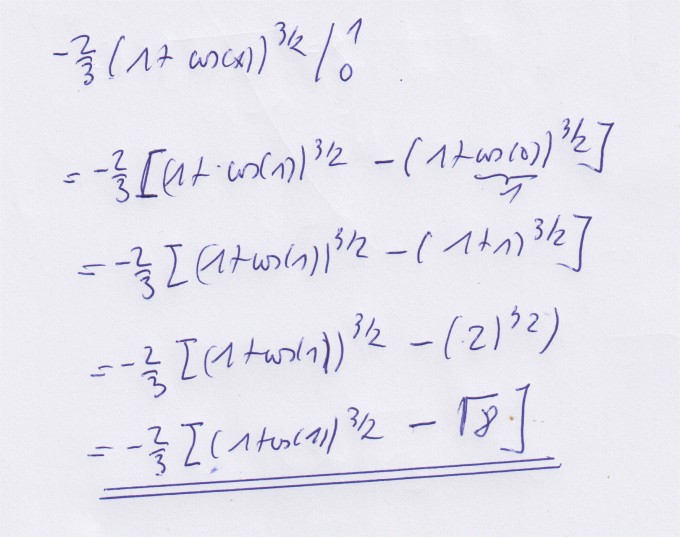 -2/3 (1+ cos(x))^3/2 |_0^1
= -2/3 [(1+ cos(1))^3/2 - (1+cos(0))^3/2]
1
= -2/3 [(1+cos(1))^3/2 - (1+1)^3/2]
= -2/3 [(1+cos(1))^3/2 - (2)^32)
= -2/3 [(1+cos(1))^3/2 - √8]